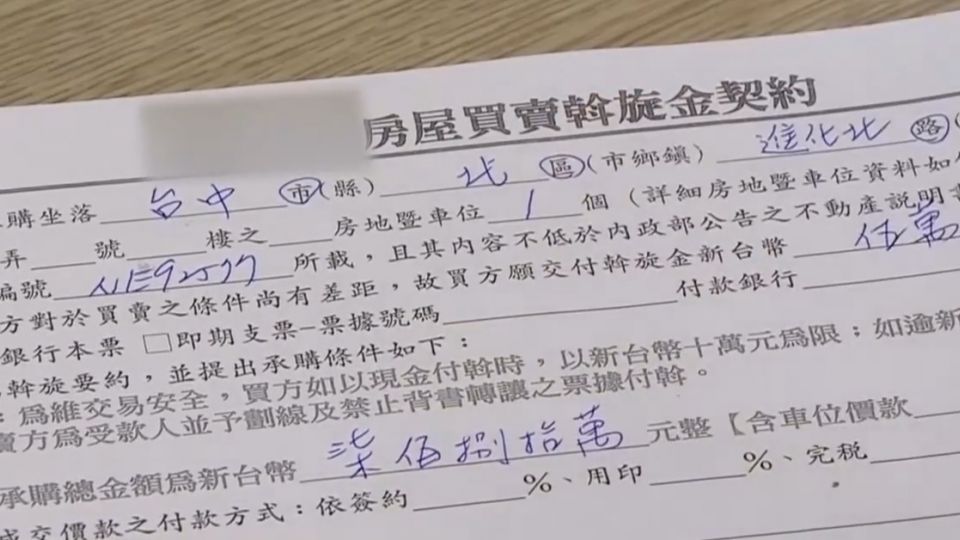 房屋買賣斡旋金契約
購坐落台中市(縣)北區(市鄉鎮)進化北路(
弄 號 樓之 房地暨車位1個(詳細房地暨車位資料如
編號 所載，且其內容不低於內政部公告之不動產說明書
方對於買賣之條件尚有差距，故買方願交付斡旋金新台幣伍萬
銀行本票 □即期支票-票據號碼 付款銀行
斡旋要約，並提出承購條件如下：
：為維交易安全，買方如以現金付斡時，以新台幣十萬元為限；如逾新
賣方為受款人並予劃線及禁止背書轉讓之票據付斡。
承購總金額為新台幣柒佰捌拾萬元整【含車位價款
成交價款之付款方式：依簽約 %、用印 %、完稅